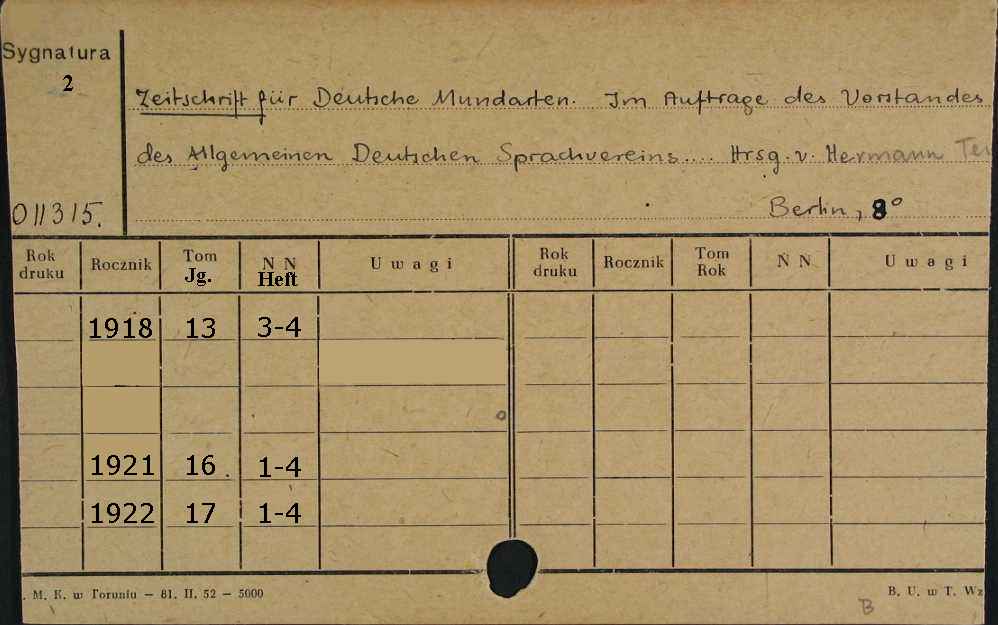 Sygnatura
2
Zeitschrift für Deutsche Mundarten. Im Auftrage des Vorstandes
des Allgemeinen Deutschen Sprachvereins.... Hrsg. v. Hermann
011315.
Berlin, 8°
Rok druku Rocznik Tom Jg. N N Heft Uwagi Rok druku Rocznik Tom Rok N N Uwagi
1918 13 3-4
1921 16 1-4
1922 17 1-4
. M. K. w Toruniu — 81. II. 52 — 5000
B. U. w T. Wz
B